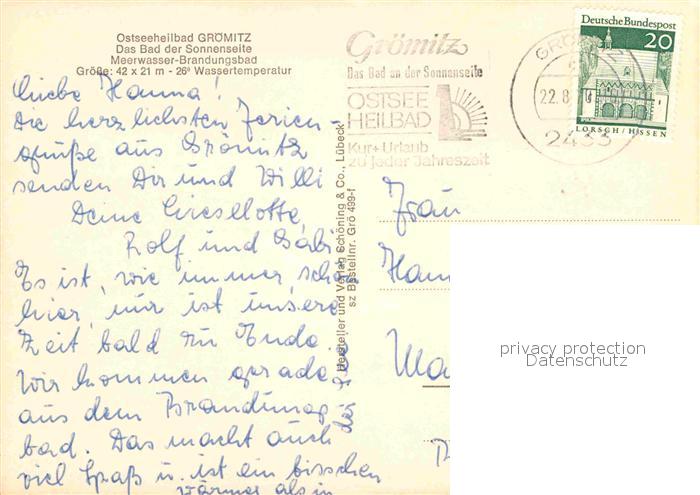 Ostseeheilbad GRÖMITZ
Das Bad der Sonnenseite
Meerwasser-Brandungsbad
Größe: 42 x 21 m - 26° Wassertemperatur
Liebe Hanna!
Die herzlichsten Ferien-
grüße aus Grömitz
senden Dir und Willi
Deine Lieselotte,
Rolf und Gabi
Es ist, wie immer, schön
hier, nur ist unsere
Zeit bald zu Ende.
Wir kommen gerade
aus dem Brandungs
bad. Das macht auch
viel Spaß u. ist ein bisschen
wärmer als in
der
Hersteller und Verlag Schöning & Co., Lübeck
sz Bestellnr. Grö 499-f
Grömitz
Das Bad an der Sonnenseite
OSTSEE
HEILBAD
Kur+Urlaub
zu jeder Jahreszeit
GRÖ
22.8
2433
Deutsche Bundespost
20
LORSCH/HESSEN
Frau
Han
privacy protection
Datenschutz